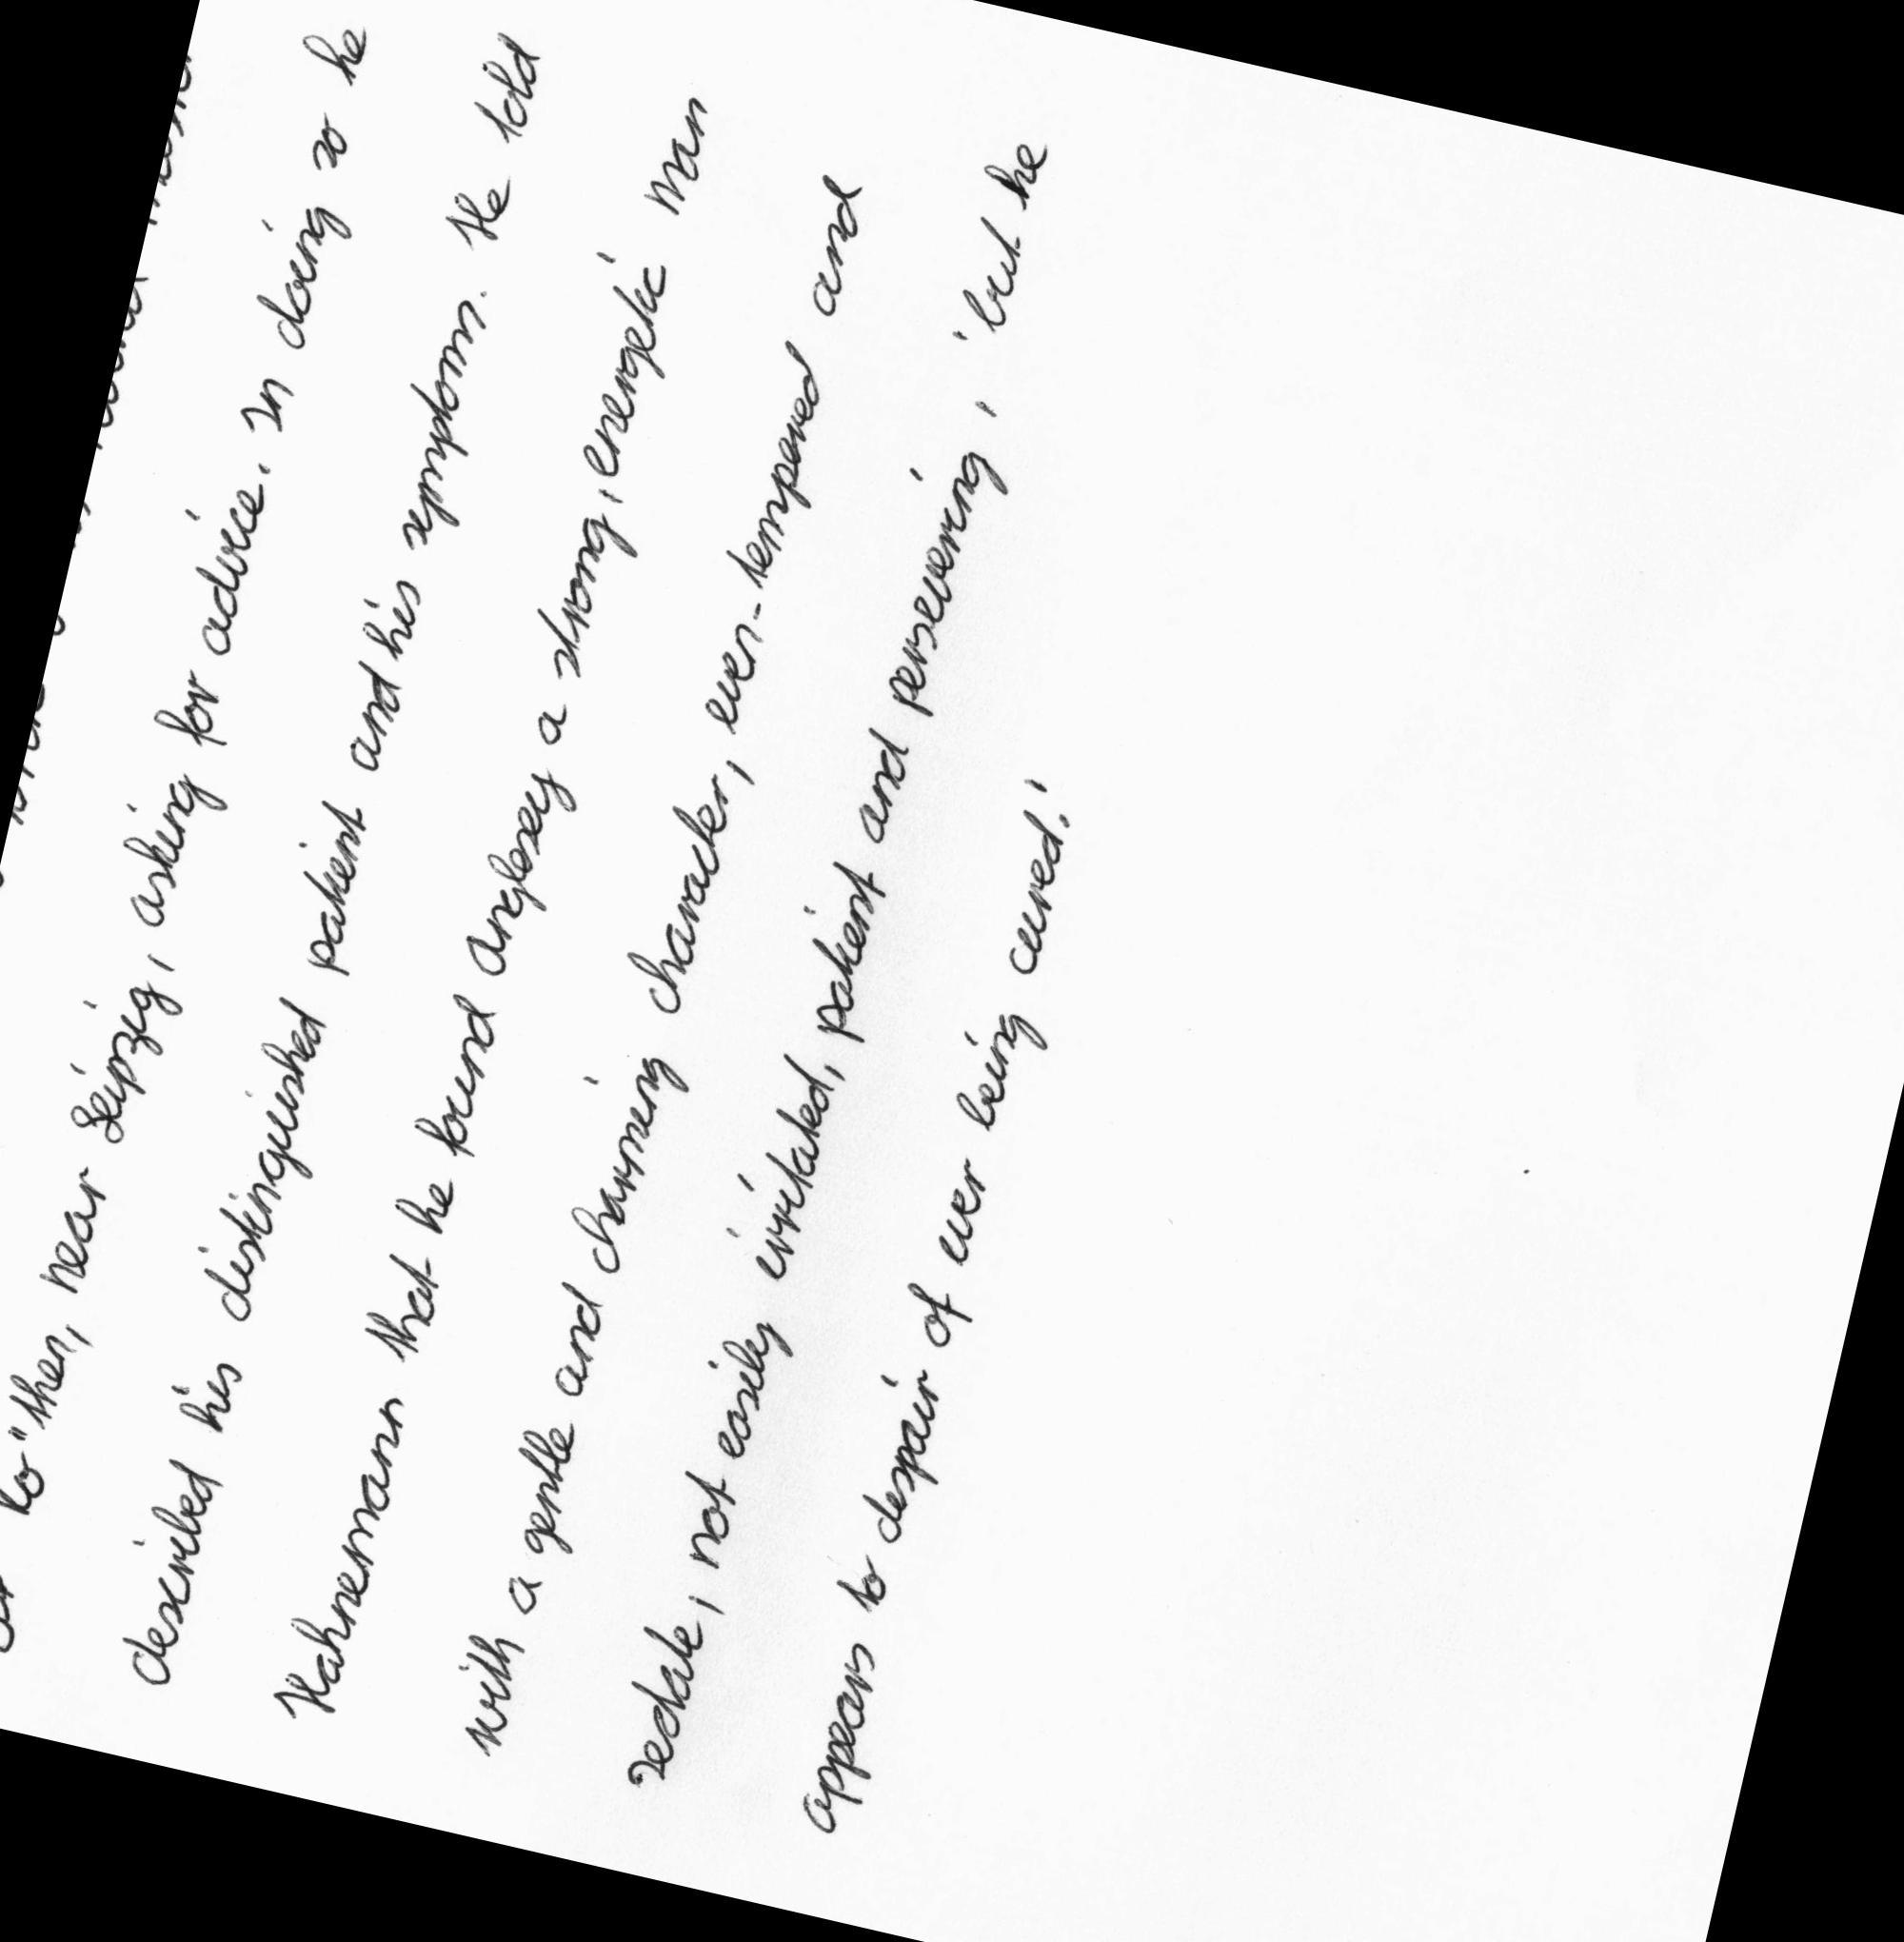 to" then, near Leipzig, asking for advice. In doing so he
described his distinguished patient and his symptoms. He told
Hahnemann that he found Anglesey a strong, energetic man
with a gentle and charming character, even-tempered and
sedate, not easily irritated, patient and persevering, 'but he
appears to despair of ever being cured.'